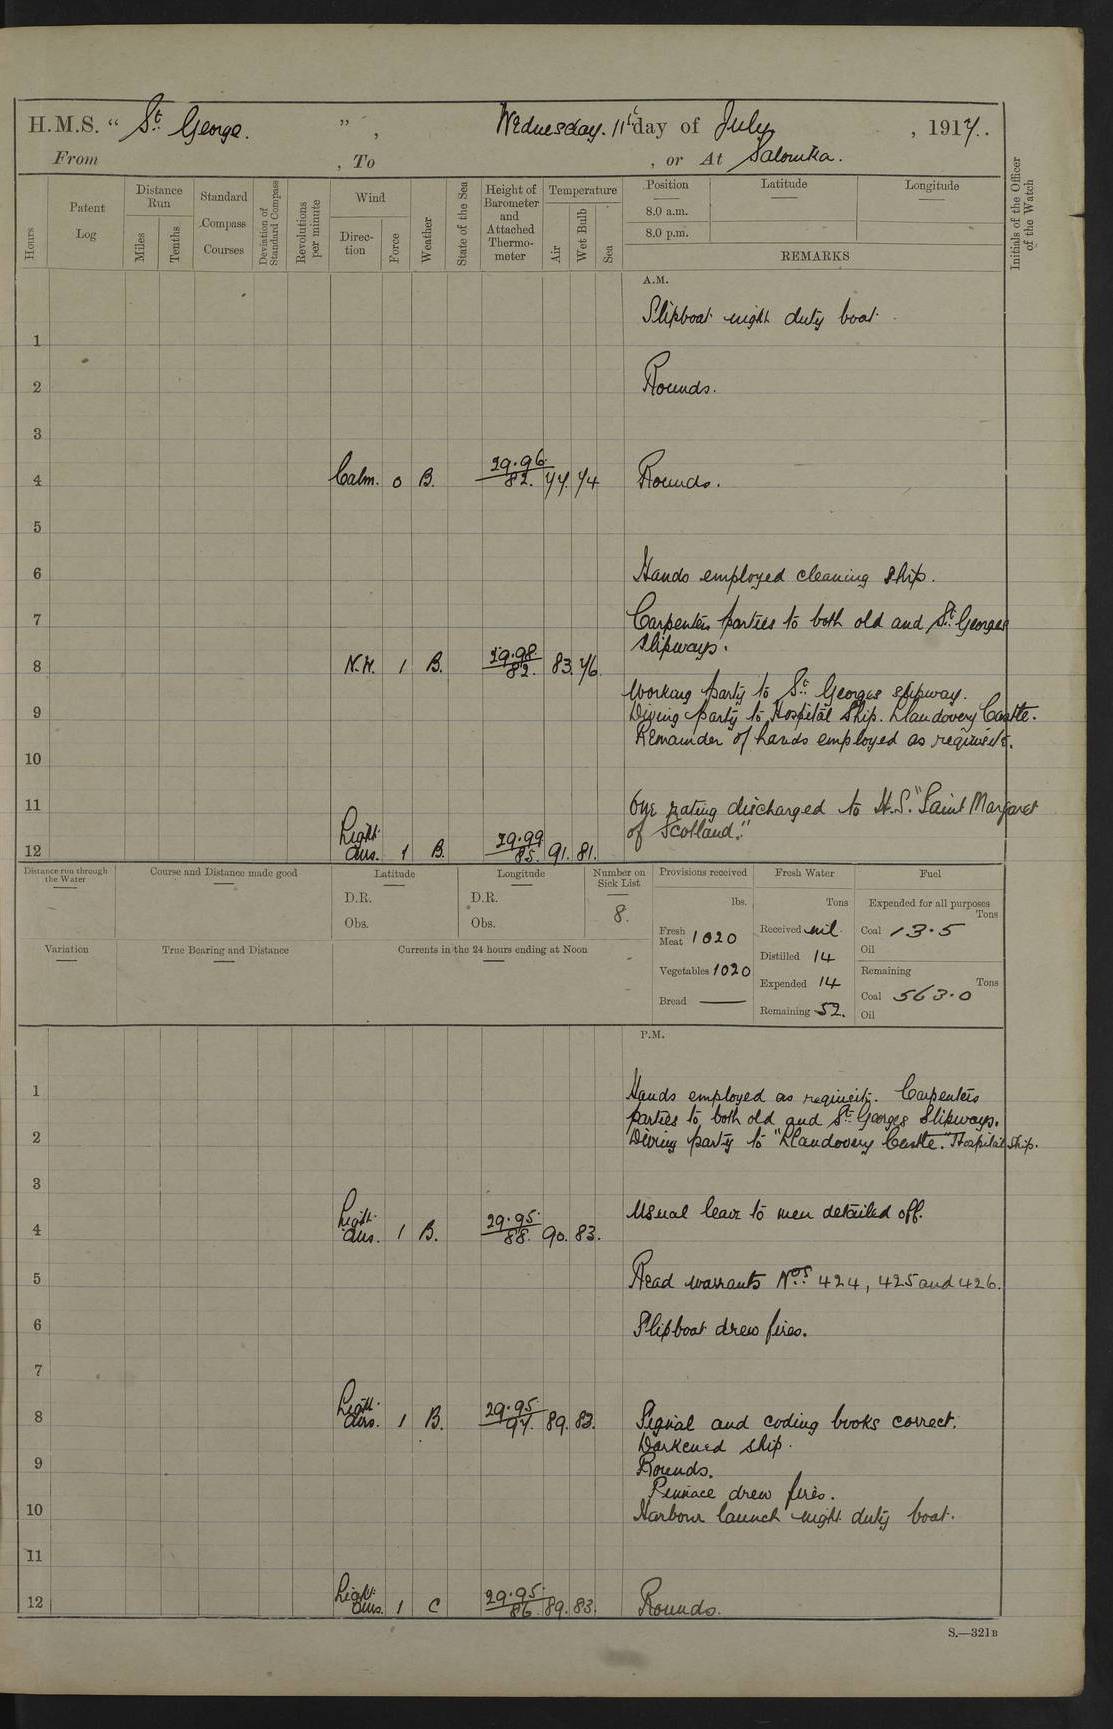 H.M.S. “ St. George. ” , Wednesday. 11th day of July , 1917.
From , To , or At Salonika.
Hours
Patent Log
Distance Run
Miles
Tenths
Standard Compass Courses
Deviation of Standard Compass
Revolutions per minute
Wind
Direction
Force
Weather
State of the Sea
Height of Barometer and Attached Thermometer
Temperature
Air
Wet Bulb
Sea
Position
Latitude
Longitude
8.0 a.m.
8.0 p.m.
REMARKS
Initials of the Officer of the Watch
A.M.
Slipboat night duty boat.
1
2 Rounds.
3
4 Calm. 0 B. 29.96. 82. 77. 74 Rounds.
5
6 Hands employed cleaning ship.
7 Carpenters parties to both old and St. Georges
slipways.
8 N.W. 1 B. 29.98. 82. 83. 76
Working party to St. Georges slipway.
9 Diving party to Hospital Ship. Llandovery Castle.
Remainder of hands employed as requisite.
10
11 One rating discharged to H.S. "Saint Margaret
of Scotland."
12 Light airs. 1 B. 29.99 85. 91. 81.
Distance run through the Water
Course and Distance made good
Latitude
D.R.
Obs.
Longitude
D.R.
Obs.
Number on Sick List
8.
Provisions received
lbs.
Fresh Meat 1020
Vegetables 1020
Bread —
Fresh Water
Tons
Received nil.
Distilled 14
Expended 14
Remaining 52.
Fuel
Expended for all purposes
Tons
Coal 13.5
Oil
Remaining
Tons
Coal 563.0
Oil
Variation
True Bearing and Distance
Currents in the 24 hours ending at Noon
P.M.
1 Hands employed as requisite. Carpenters
parties to both old and St. Georges Slipways.
2 Diving party to "Llandovery Castle." Hospital Ship.
3
Usual leave to men detailed off.
4 Light airs. 1 B. 29.95. 88. 90. 83.
5 Read warrants Nos. 424, 425 and 426.
6 Slipboat drew fires.
7
8 Light airs. 1 B. 29.95 97. 89. 83. Signal and coding books correct.
Darkened ship.
9 Rounds.
Pinnace drew fires.
10 Harbour launch night duty boat.
11
12 Light airs. 1 C 29.95. 86. 89. 83. Rounds.
S.—321B